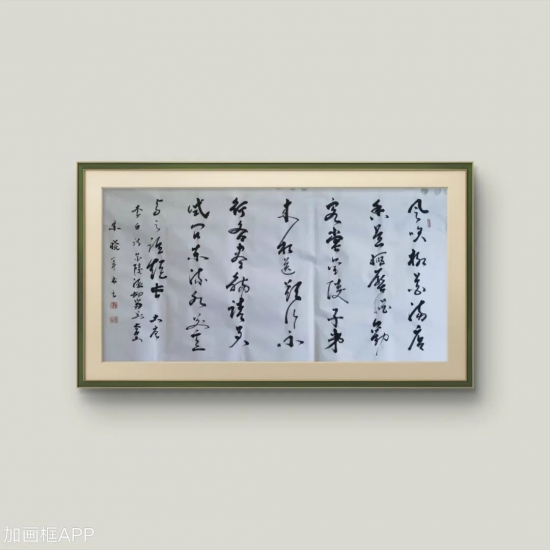 风吹柳花满店
香吴姬压酒劝
客尝金陵子弟
来相送欲行不
行各尽觞请君
试问东流水别意
与之谁短长 大唐
李白诗金陵酒肆
书之
加画框APP